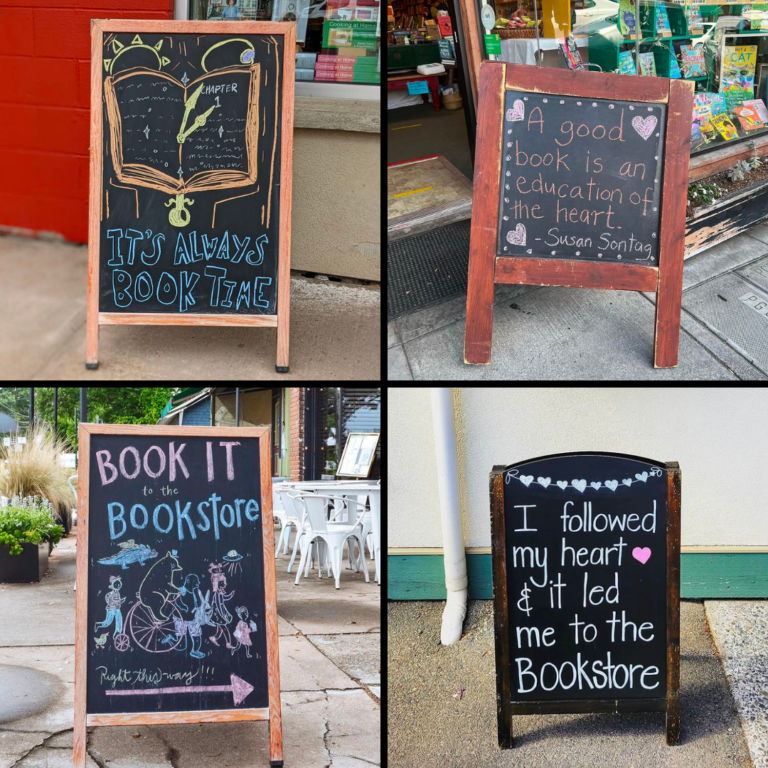 CHAPTER
1
IT'S ALWAYS
BOOK TIME
Cooking at Home
Cooking at Home
A good
book is an
education of
the heart.
-Susan Sontag
CAT
BOOK IT
to the
BOOKStore
Right this way!!!
I followed
my heart
& it led
me to the
BOOKstore